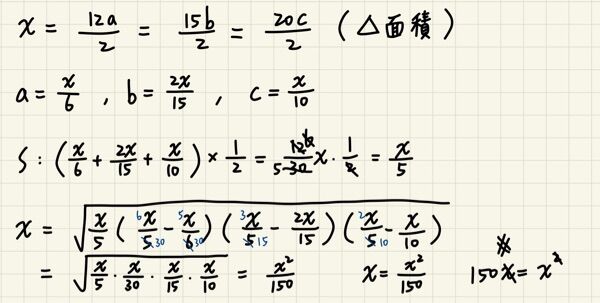 x = 12a/2 = 15b/2 = 20c/2 (△面積)
a = x/6 , b = 2x/15 , c = x/10
S : (x/6 + 2x/15 + x/10) × 1/2 = 12/30 x · 1/2 = x/5
x = √(x/5 (x/5 - x/6) (x/5 - 2x/15) (x/5 - x/10))
= √(x/5 · x/30 · x/15 · x/10) = x²/150 x = x²/150 150x = x²